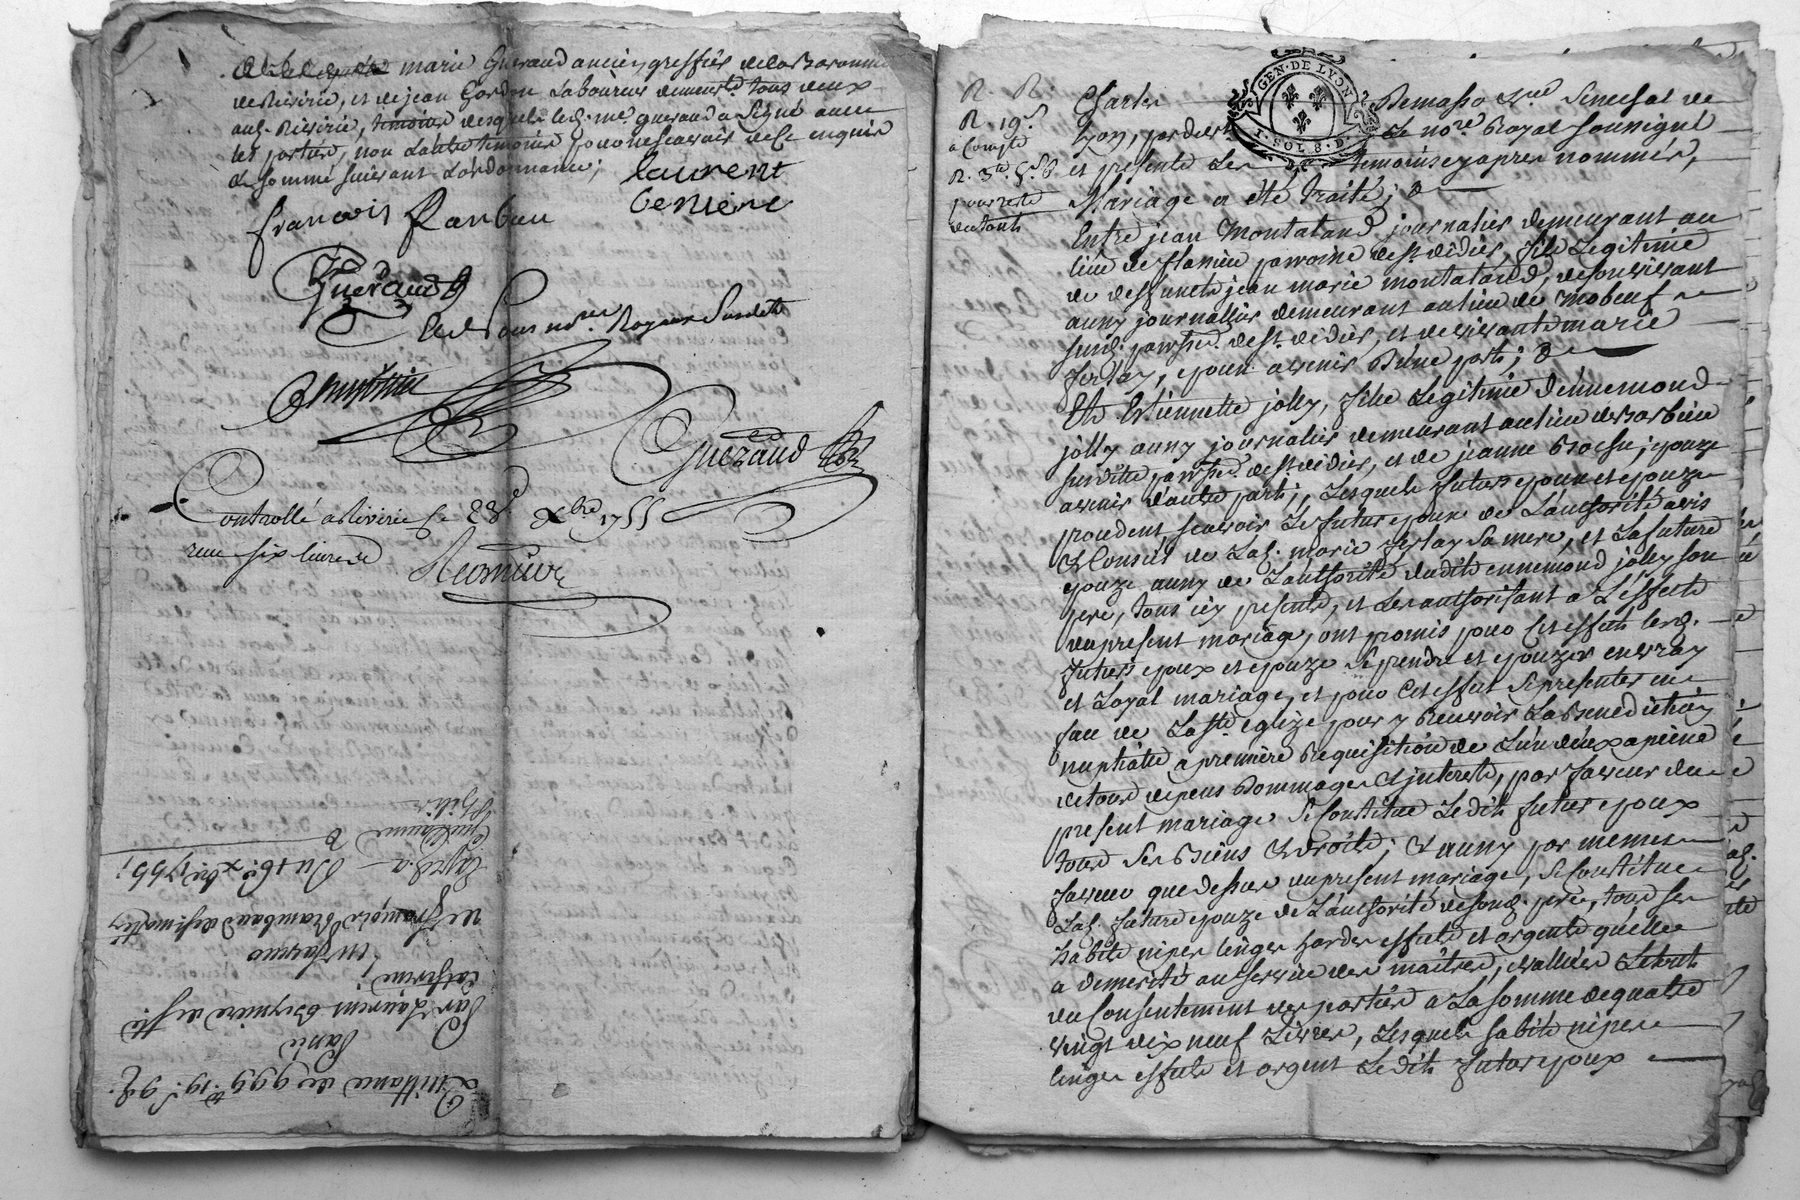 marie Gueraud ancien greffier de la Baronnie
de Riverie, et de jean Gordon Laboureur demeurts. tous deux
aud. Riverie, temoins desquels led. me. gueraud a Signé avec
les parties, non Lautre temoins pour ne scavoir de ce enquis
de sommé suivant L'ordonnance;
laurent
francois Ranbau
Gueraud
Gueraud
Controllé a Riverie le 28e xbre 1755
reçu six livres
Quittance de 999. 19s. 9d.
Passé
Par Laurens
Catherine;
en faveur
de françois Rambaud
Du 16e. xbre. 1755;
Guillaume
R. R.
R. 19s.
a Compte
pour reste
GEN. DE LYON
2. SOL 8. D.
Charles Demasso Senechal de
Lyon, pardevt Le nore. Royal soussigné
et presents Les temoins cy apres nommés,
Mariage a été traité;
Entre jean Montaland journalier demeurant au
lieu de flamieu parroisse de st. didier, fils Legitime
de deffunct jean marie montaland, de son vivant
aussy journallier demeurant au lieu de
surd. parrse. de st. didier, et de vivante marie
Ferlay, epoux avenir D'une part;
Et Estiennette jolly, fille Legitime d'ennemond
jolly aussy journalier demeurant au lieu de
surditte parrse. de st. didier, et de jeanne epouze
avenir d'autre part; Lesquels futurs epoux et epouze
procedent scavoir Le futur epoux de L'authorité avis
et Conseil de Lad. marie ferlay Sa mere, et La future
epouze aussy de L'authorité dudit ennemond jolly son
pere, tous icy presents, et Les authorisant a L'effect
du present mariage, ont promis pour Cet effect lesd.
futurs epoux et epouze Se prendre et epouzer en vray
et Loyal mariage, et pour Cet effect Se presenter en
face de La Ste. eglize pour y Recevoir La Benediction
nuptialle a premiere Requisition de L'un d'eux a peine
de tous depens Dommages et interests, par faveur du
present mariage Se Constitue Le dit futur epoux
tous Ses Biens et droits; et aussy par meme
faveur que dessus du present mariage, Se Constitue
Lad. future epouze de L'authorité de sond. pere, tous ses
habits nipes linges hardes effects et argents qu'elle
a demerité au service des maitres, evalluées Le tout
du Consentement des parties a La somme de quatre
vingt dix neuf Livres, Lesquels habits nipes
linges effects et argent Le dit futur epoux